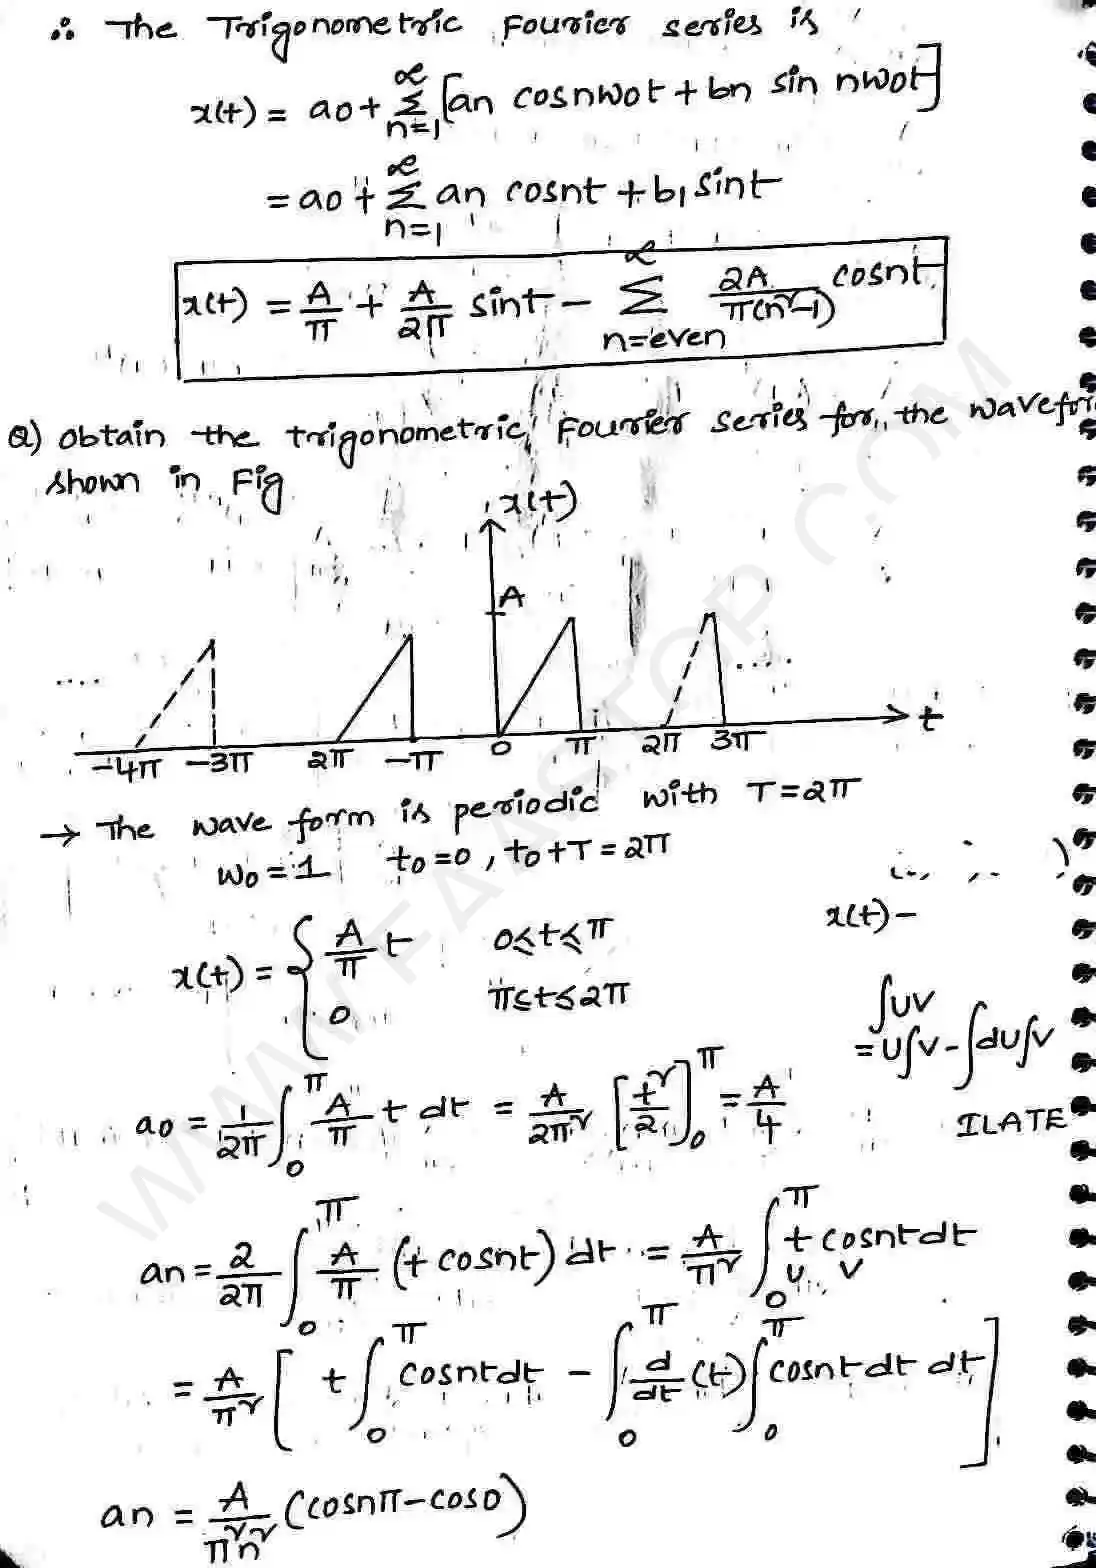 ∴ The Trigonometric Fourier series is
x(t) = a0 + ∞Σn=1 [an cosnω0t + bn sin nω0t]
= a0 + ∞Σn=1 an cosnt + b1 sint
x(t) = A/π + A/2π sint - ∞Σn=even 2A/π(n²-1) cosnt
Q) obtain the trigonometric Fourier series for the wavefor
shown in Fig
x(t)
A
.... ....
-4π -3π 2π -π 0 π 2π 3π t
→ The wave form is periodic with T=2π
ω0 = 1 t0=0, t0+T=2π
x(t) -
x(t) = { A/π t 0≤t≤π
0 π≤t≤2π
∫UV
= U∫V - ∫dU∫V
ILATE
a0 = 1/2π ∫0^π A/π t dt = A/2π² [t²/2]0^π = A/4
an = 2/2π ∫0^π A/π (t cosnt) dt = A/π² ∫0^π t cosnt dt
U V
= A/π² [ t ∫0^π cosnt dt - ∫0^π d/dt (t) ∫0^π cosnt dt dt ]
an = A/π²n² (cosnπ - cos0)
WWW.FAASTOP.COM